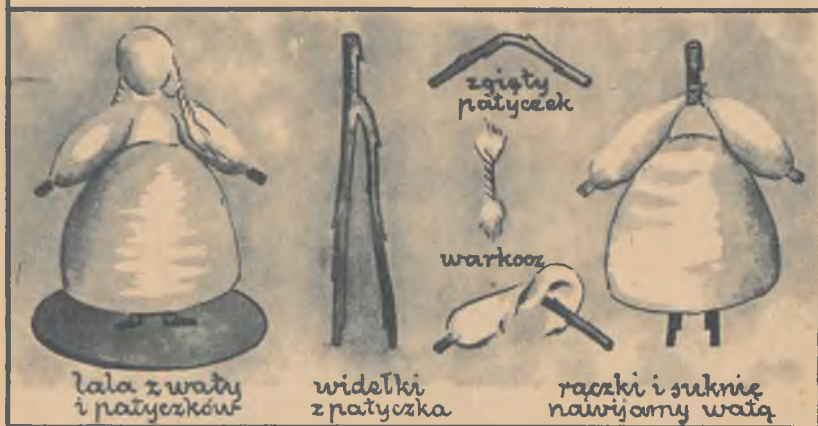 zgięty
patyczek
warkocz
lala z waty
i patyczków
widełki
z patyczka
rączki i suknię
nawijamy watą